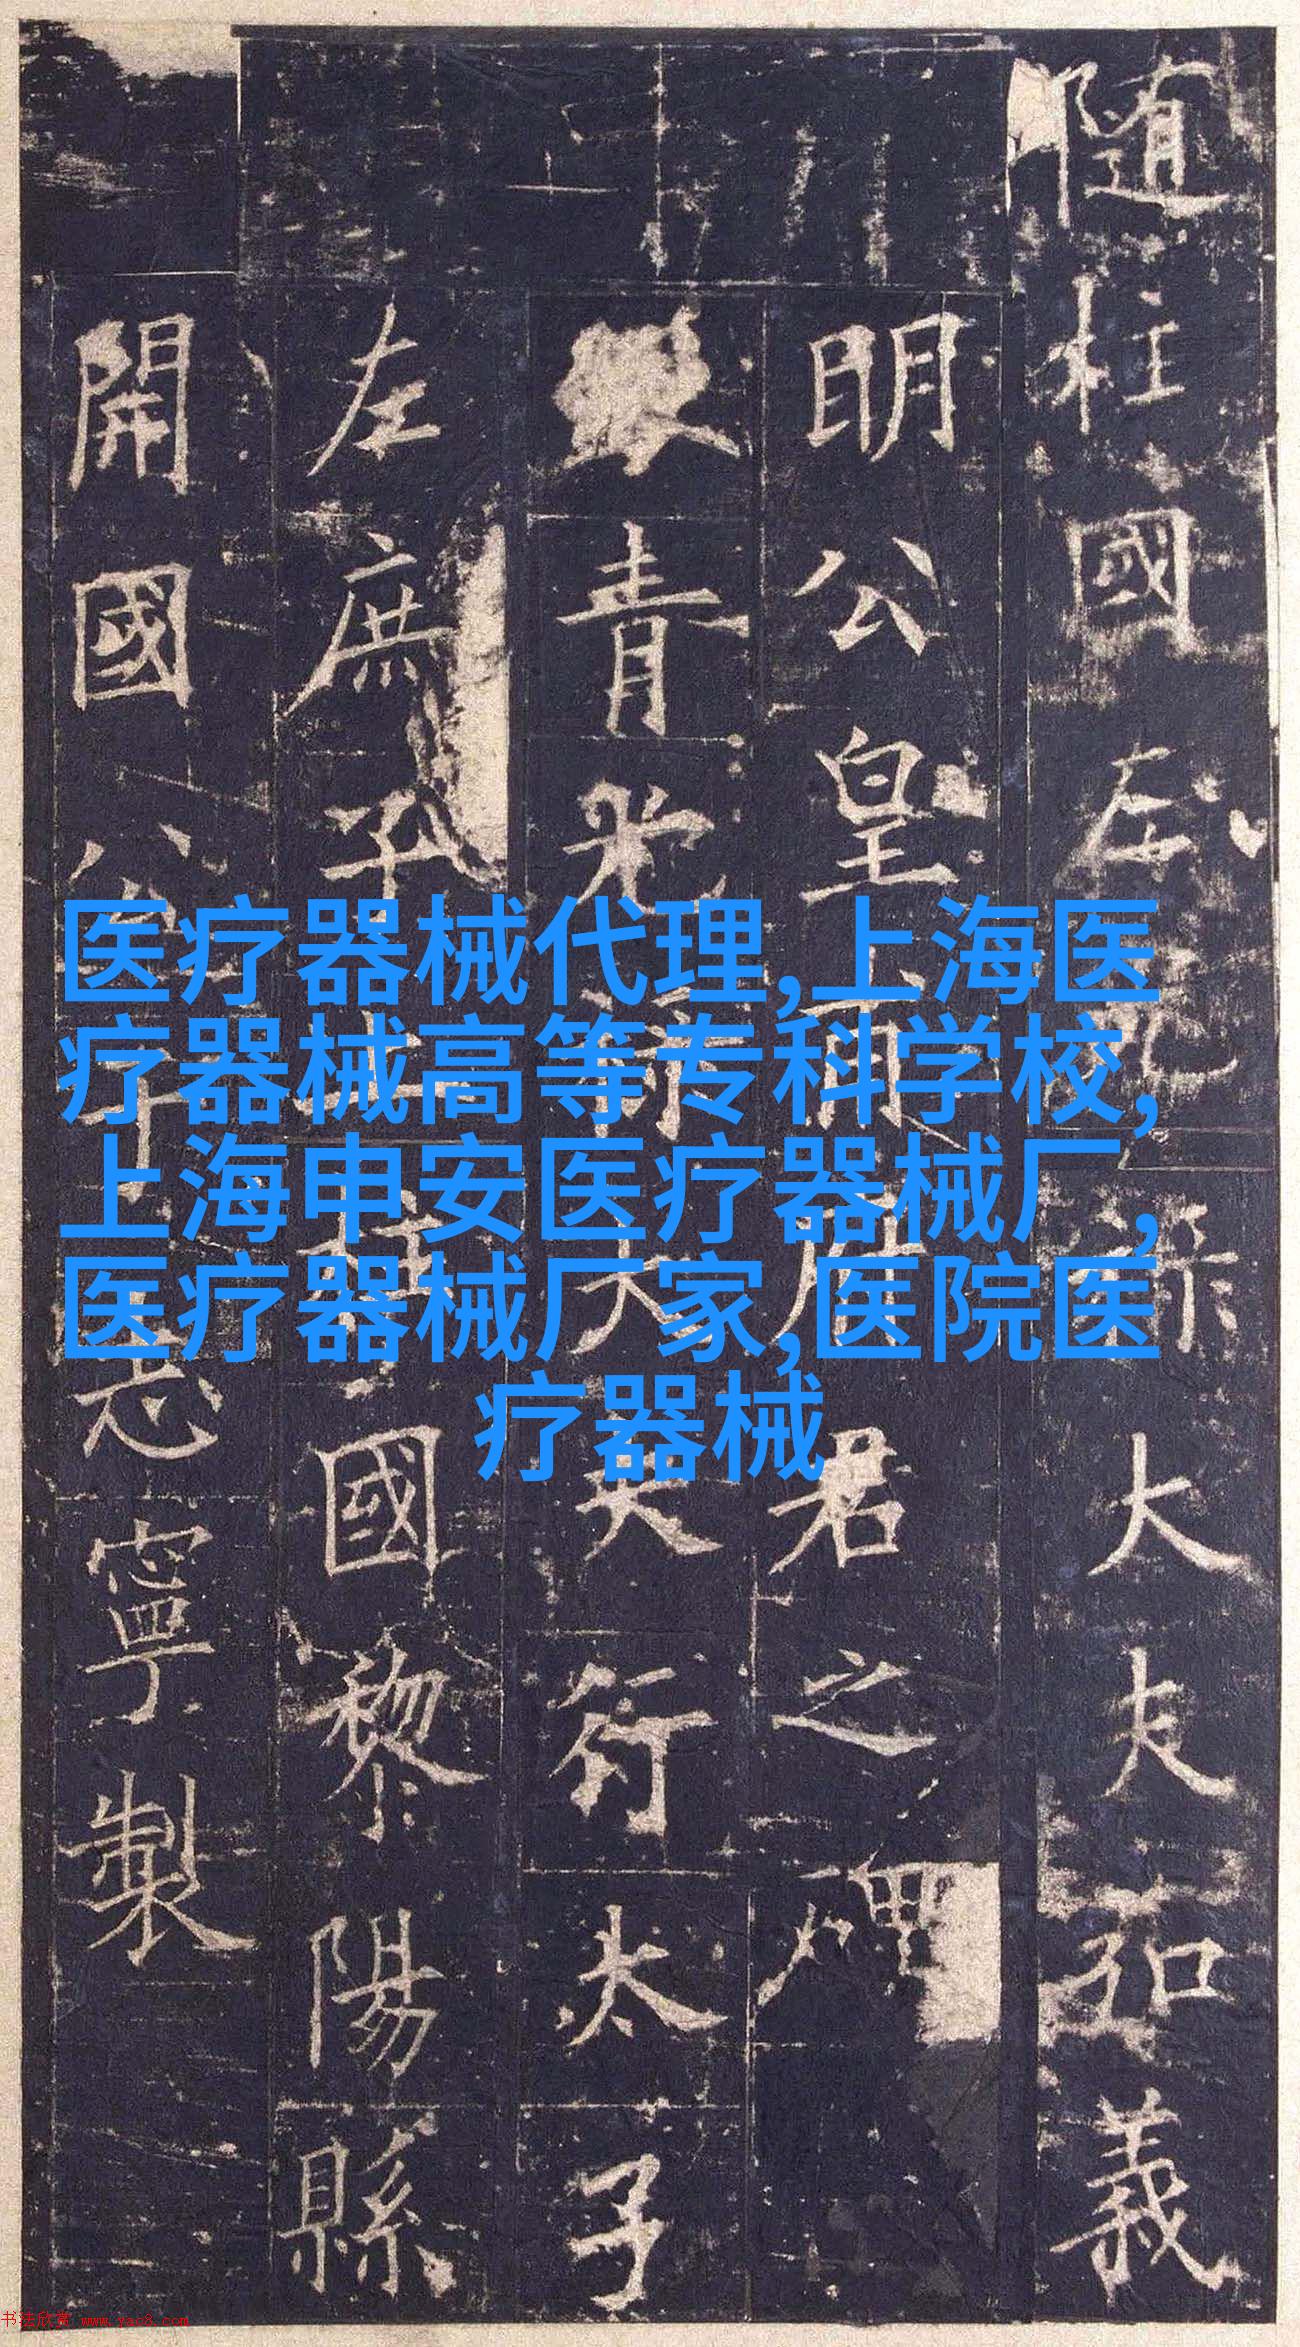 随柱國左光祿大夫弘義
明公皇甫府君之碑
銀青光祿大夫行太子
左庶子上柱國黎陽縣
開國公于志寧製
医疗器械代理,上海医
疗器械高等专科学校,
上海申安医疗器械厂,
医疗器械厂家,医院医
疗器械
书法欣赏 www.yac8.com